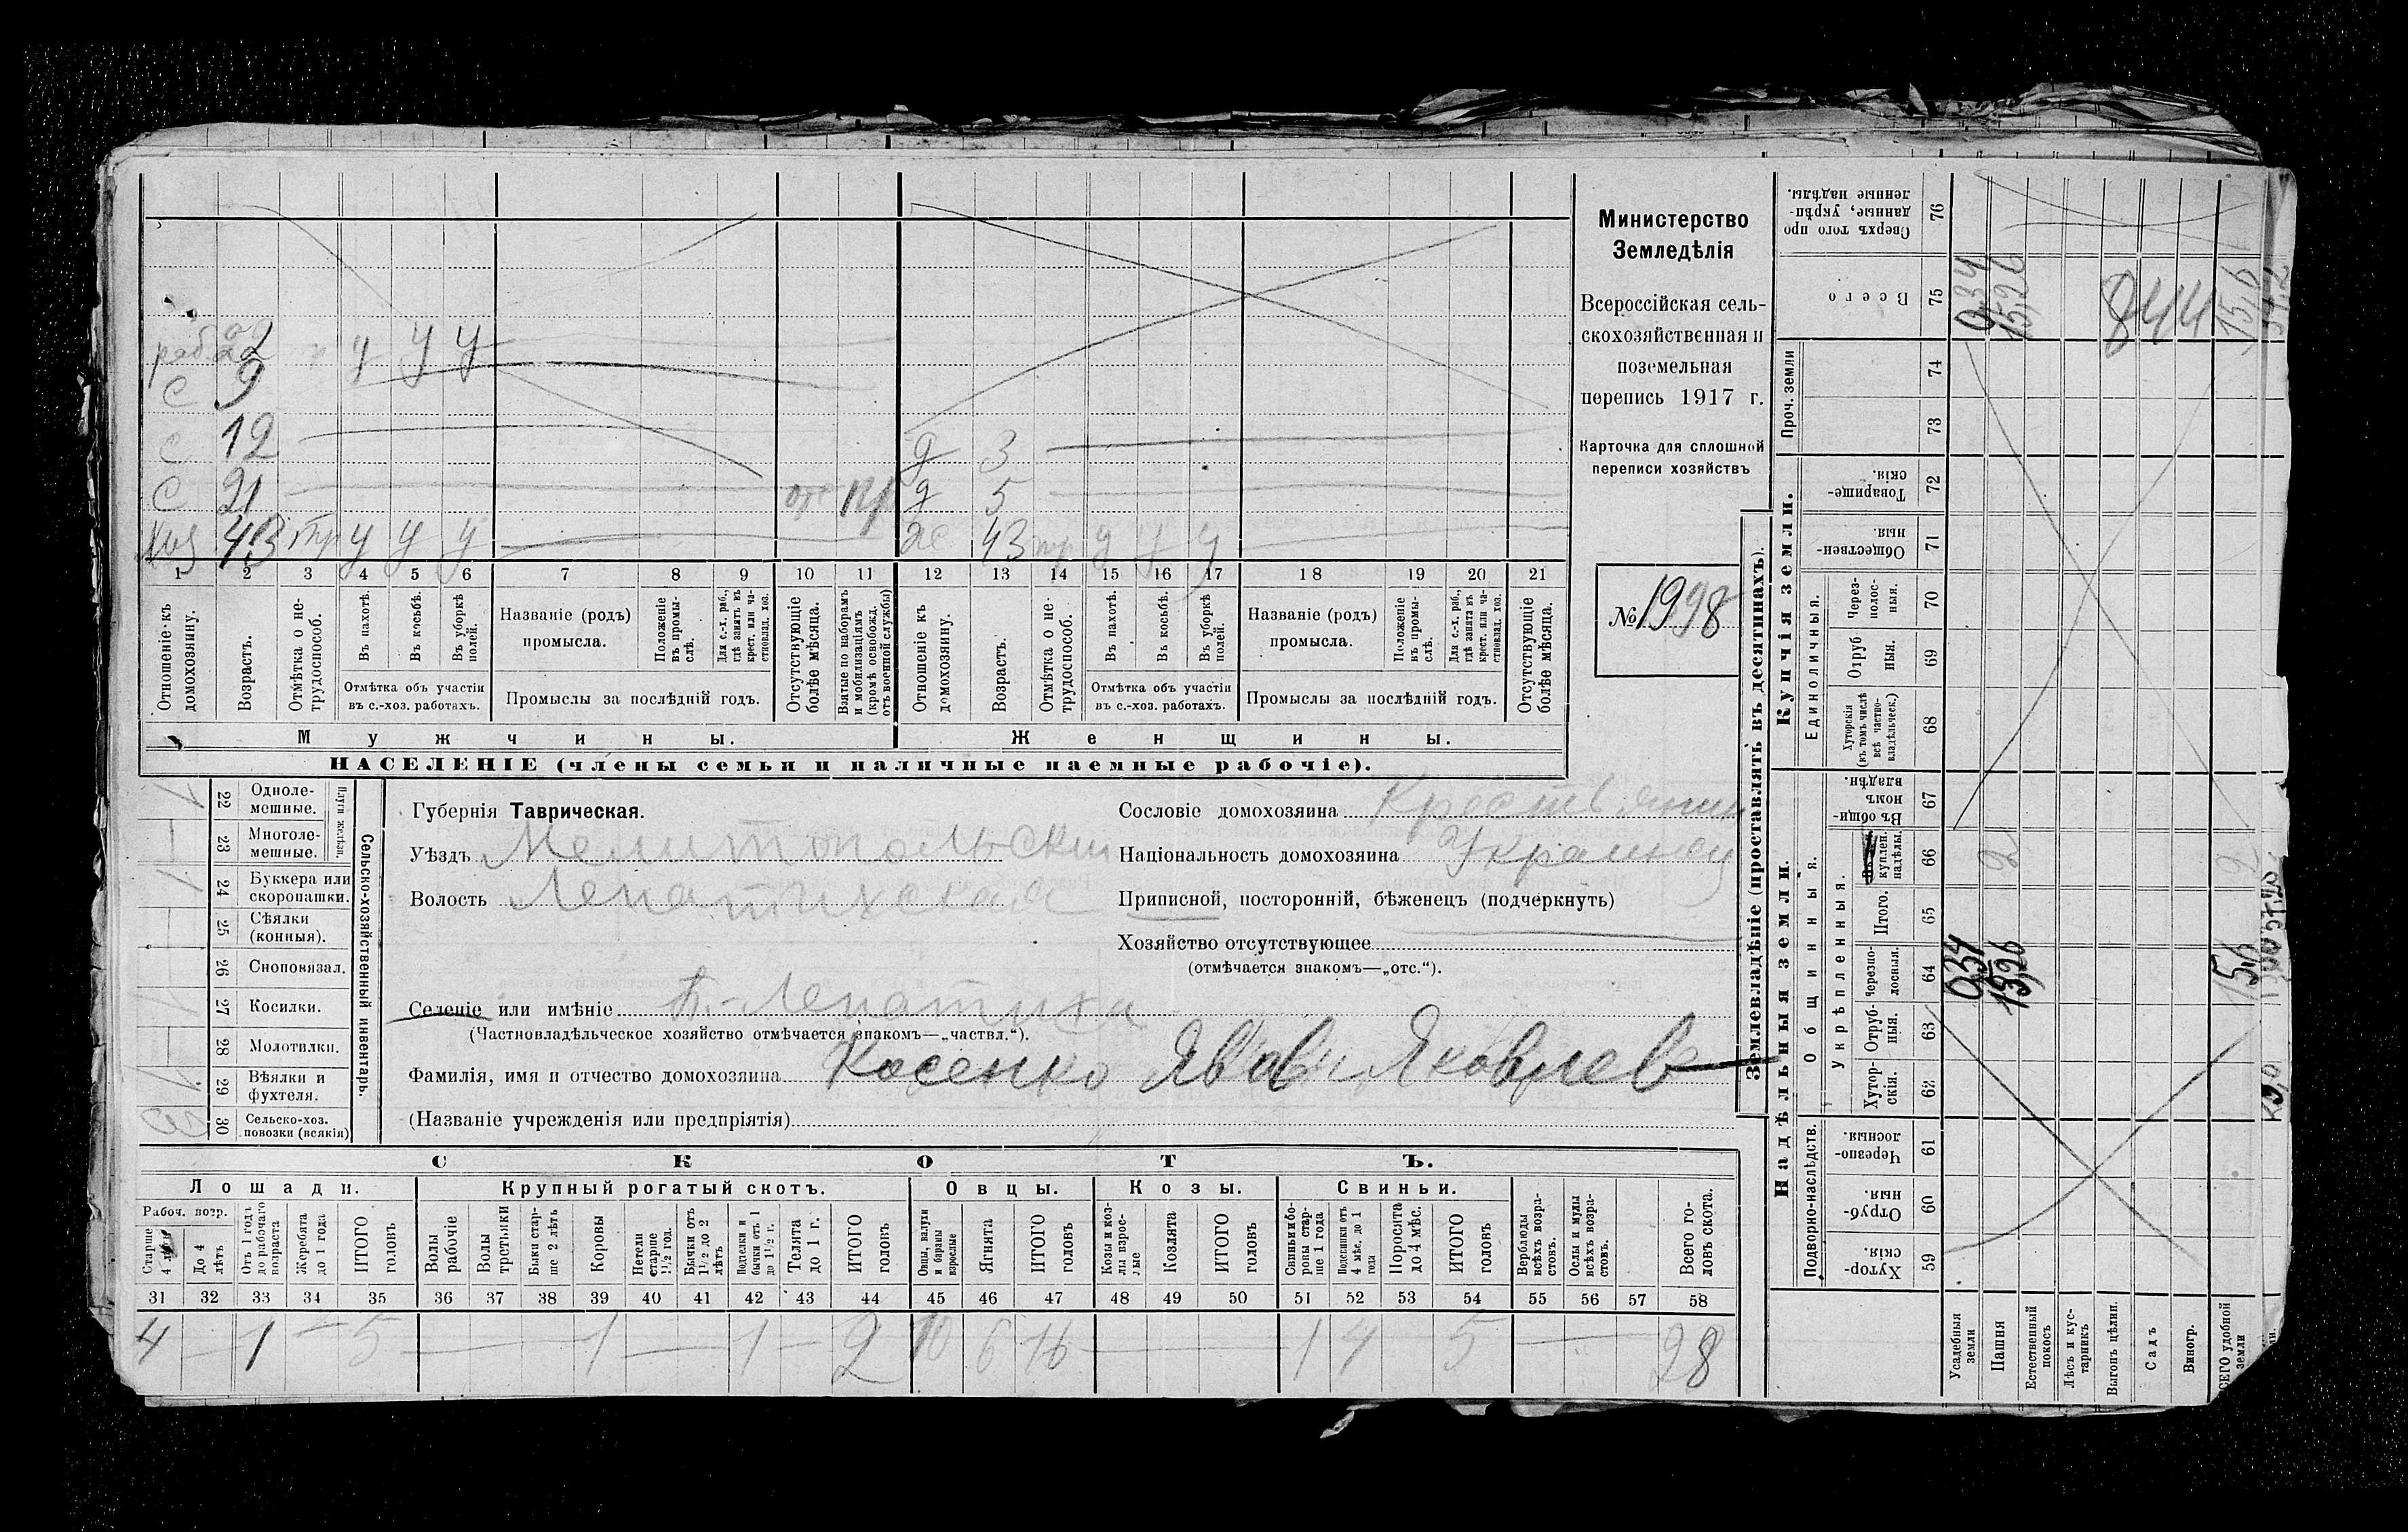 раб. 22 у у у
с 9
с 12
с 21 отс
хоз 43 у у у
д 3
д 5
ж 43 у у у
1 2 3 4 5 6 7 8 9 10 11 12 13 14 15 16 17 18 19 20 21
Отношеніе къ домохозяину.
Возрастъ.
Отмѣтка о не-трудоспособ.
Въ пахотѣ.
Въ косьбѣ.
Въ уборкѣ полей.
Отмѣтка объ участіи
въ с.-хоз. работахъ.
Названіе (родъ)
промысла.
Положеніе въ промы-слѣ.
Для с.-х. раб., гдѣ занятъ въ крест. или ча-стновлад. хоз.
Промыслы за послѣдній годъ.
Отсутствующіе болѣе мѣсяца.
Взятые по наборамъ и мобилизаціямъ (кромѣ освобожд. отъ военной службы)
Отношеніе къ домохозяину.
Возрастъ.
Отмѣтка о не-трудоспособ.
Въ пахотѣ.
Въ косьбѣ.
Въ уборкѣ полей.
Отмѣтка объ участіи
въ с.-хоз. работахъ.
Названіе (родъ)
промысла.
Положеніе въ промы-слѣ.
Для с.-х. раб., гдѣ занята въ крест. или ча-стновлад. хоз.
Промыслы за послѣдній годъ.
Отсутствующіе болѣе мѣсяца.
Мужчины. Женщины.
НАСЕЛЕНІЕ (члены семьи и наличные наемные рабочіе).
Министерство
Земледѣлія
Всероссійская сель-
скохозяйственная и
поземельная
перепись 1917 г.
Карточка для сплошной
переписи хозяйствъ
№ 1998
Сельско-хозяйственный инвентарь.
Плуги желѣзн.
22 Одноле-мешные. 1
23 Многоле-мешные.
24 Буккера или скоропашки. 1
25 Сѣялки (конныя).
26 Сноповязал.
27 Косилки. 1
28 Молотилки.
29 Вѣялки и фухтеля. 1
30 Сельско-хоз. повозки (всякія)
Губернія Таврическая.
Уѣздъ Мелитопольскій
Волость Лепатихская
Селеніе или имѣніе Б.-Лепатиха
(Частновладѣльческое хозяйство отмѣчается знакомъ—„частвл.“).
Фамилія, имя и отчество домохозяина Косенко Яков Яковлев
(Названіе учрежденія или предпріятія)
Сословіе домохозяина Крестьянин
Національность домохозяина Украинец
Приписной, посторонній, бѣженецъ (подчеркнуть)
Хозяйство отсутствующее
(отмѣчается знакомъ—„отс.“).
СКОТЪ.
Лошади. Крупный рогатый скотъ. Овцы. Козы. Свиньи.
Рабоч. возр.
Старше 4 лѣтъ
До 4 лѣтъ
Отъ 1 года до рабочаго возраста
Жеребята до 1 года
ИТОГО головъ
Волы рабочіе
Волы третьяки
Быки стар-ше 2 лѣтъ
Коровы
Нетели старше 1½ год.
Бычки отъ 1½ до 2 лѣтъ
Подтелки и бычки отъ 1 до 1½ г.
Телята до 1 г.
ИТОГО головъ
Овцы, валухи и бараны взрослые
Ягнята
ИТОГО головъ
Козы и коз-лы взрос-лые
Козлята
ИТОГО головъ
Свиньи и бо-ровы стар-ше 1 года
Подсвинки отъ 4 мѣс. до 1 года
Поросята до 4 мѣс.
ИТОГО головъ
Верблюды всѣхъ возра-стовъ.
Ослы и мулы всѣхъ возра-стовъ.
Всего го-ловъ скота.
31 32 33 34 35 36 37 38 39 40 41 42 43 44 45 46 47 48 49 50 51 52 53 54 55 56 57 58
4 — 1 — 5 — 1 — 1 — 2 10 6 16 — 1 4 5 — 28
Землевладѣніе (проставлять въ десятинахъ).
Надѣльныя земли. Купчія земли. Проч. земли
Подворно-наслѣдств.
Общинныя.
Укрѣпленныя.
Единоличныя.
Хутор-скія. 59
Отруб-ныя. 60
Черезпо-лосныя. 61
Хутор-скія. 62
Отруб-ныя. 63
Черезпо-лосныя. 64
Итого. 65
куплен. надѣлы. 66
Въ общин-номъ владѣн. 67
Хуторскія (въ томъ числѣ всѣ частно-владѣльческ.) 68
Отруб-ныя. 69
Через-полос-ныя. 70
Обществен-ныя. 71
Товарище-скія. 72
73
74
Всего 75
Сверхъ того про-данные, укрѣп-ленные надѣлы. 76
Усадебныя земли 0,34 0,34
Пашня 15,26 2 15,26
Естественный покосъ
Лѣсъ и кус-тарникъ
Выгонъ цѣлин.
Садъ
Виногр.
ВСЕГО удобной земли 15,6 2 15,6
844